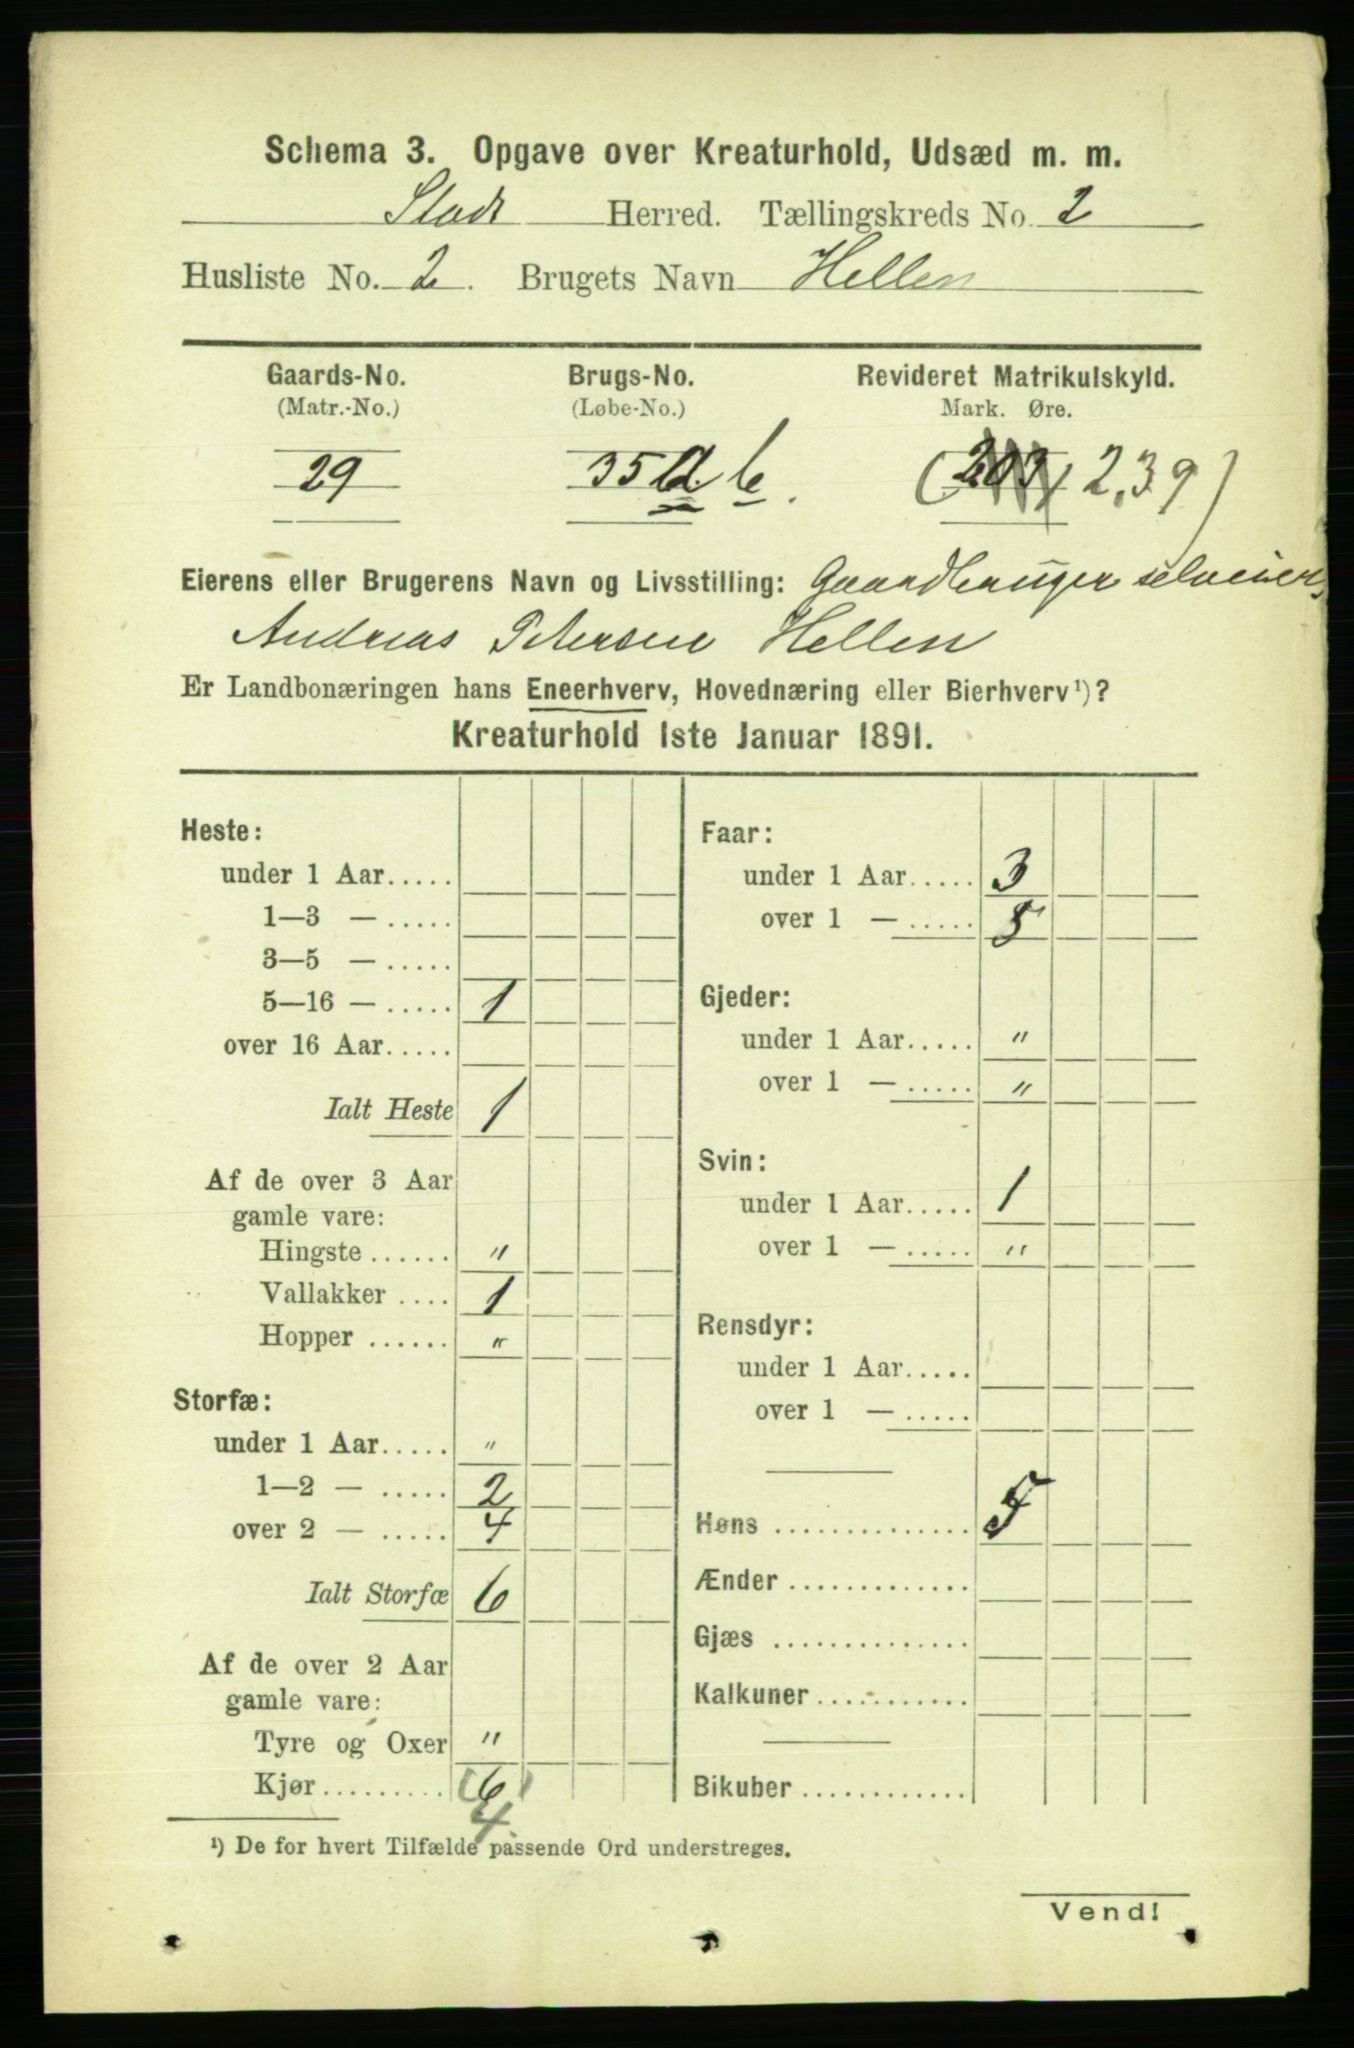 Schema 3. Opgave over Kreaturhold, Udsæd m. m.
Stadt Herred. Tællingskreds No. 2
Husliste No. 2. Brugets Navn Hellen
Gaards-No. Brugs-No. Revideret Matrikulskyld.
(Matr.-No.) (Løbe-No.) Mark. Øre.
29 35 a. b. (203, 2,39)
Eierens eller Brugerens Navn og Livsstilling: Gaardbruger selveier
Andreas Petersen Hellen
Er Landbonæringen hans Eneerhverv, Hovednæring eller Bierhverv¹)?
Kreaturhold 1ste Januar 1891.
Heste:
under 1 Aar.....
1—3 — .....
3—5 — .....
5—16 — ..... 1
over 16 Aar.....
Ialt Heste 1
Af de over 3 Aar
gamle vare:
Hingste ...... "
Vallakker .... 1
Hopper ...... "
Storfæ:
under 1 Aar..... "
1—2 — ..... 2
over 2 — ..... 4
Ialt Storfæ 6
Af de over 2 Aar
gamle vare:
Tyre og Oxer "
Kjør......... (6)
4
Faar:
under 1 Aar..... 3
over 1 — ..... 5
Gjeder:
under 1 Aar..... "
over 1 — ..... "
Svin:
under 1 Aar..... 1
over 1 — ..... "
Rensdyr:
under 1 Aar.....
over 1 — .....
Høns .............. 5
Ænder .............
Gjæs ..............
Kalkuner ...........
Bikuber ............
¹) De for hvert Tilfælde passende Ord understreges.
Vend!